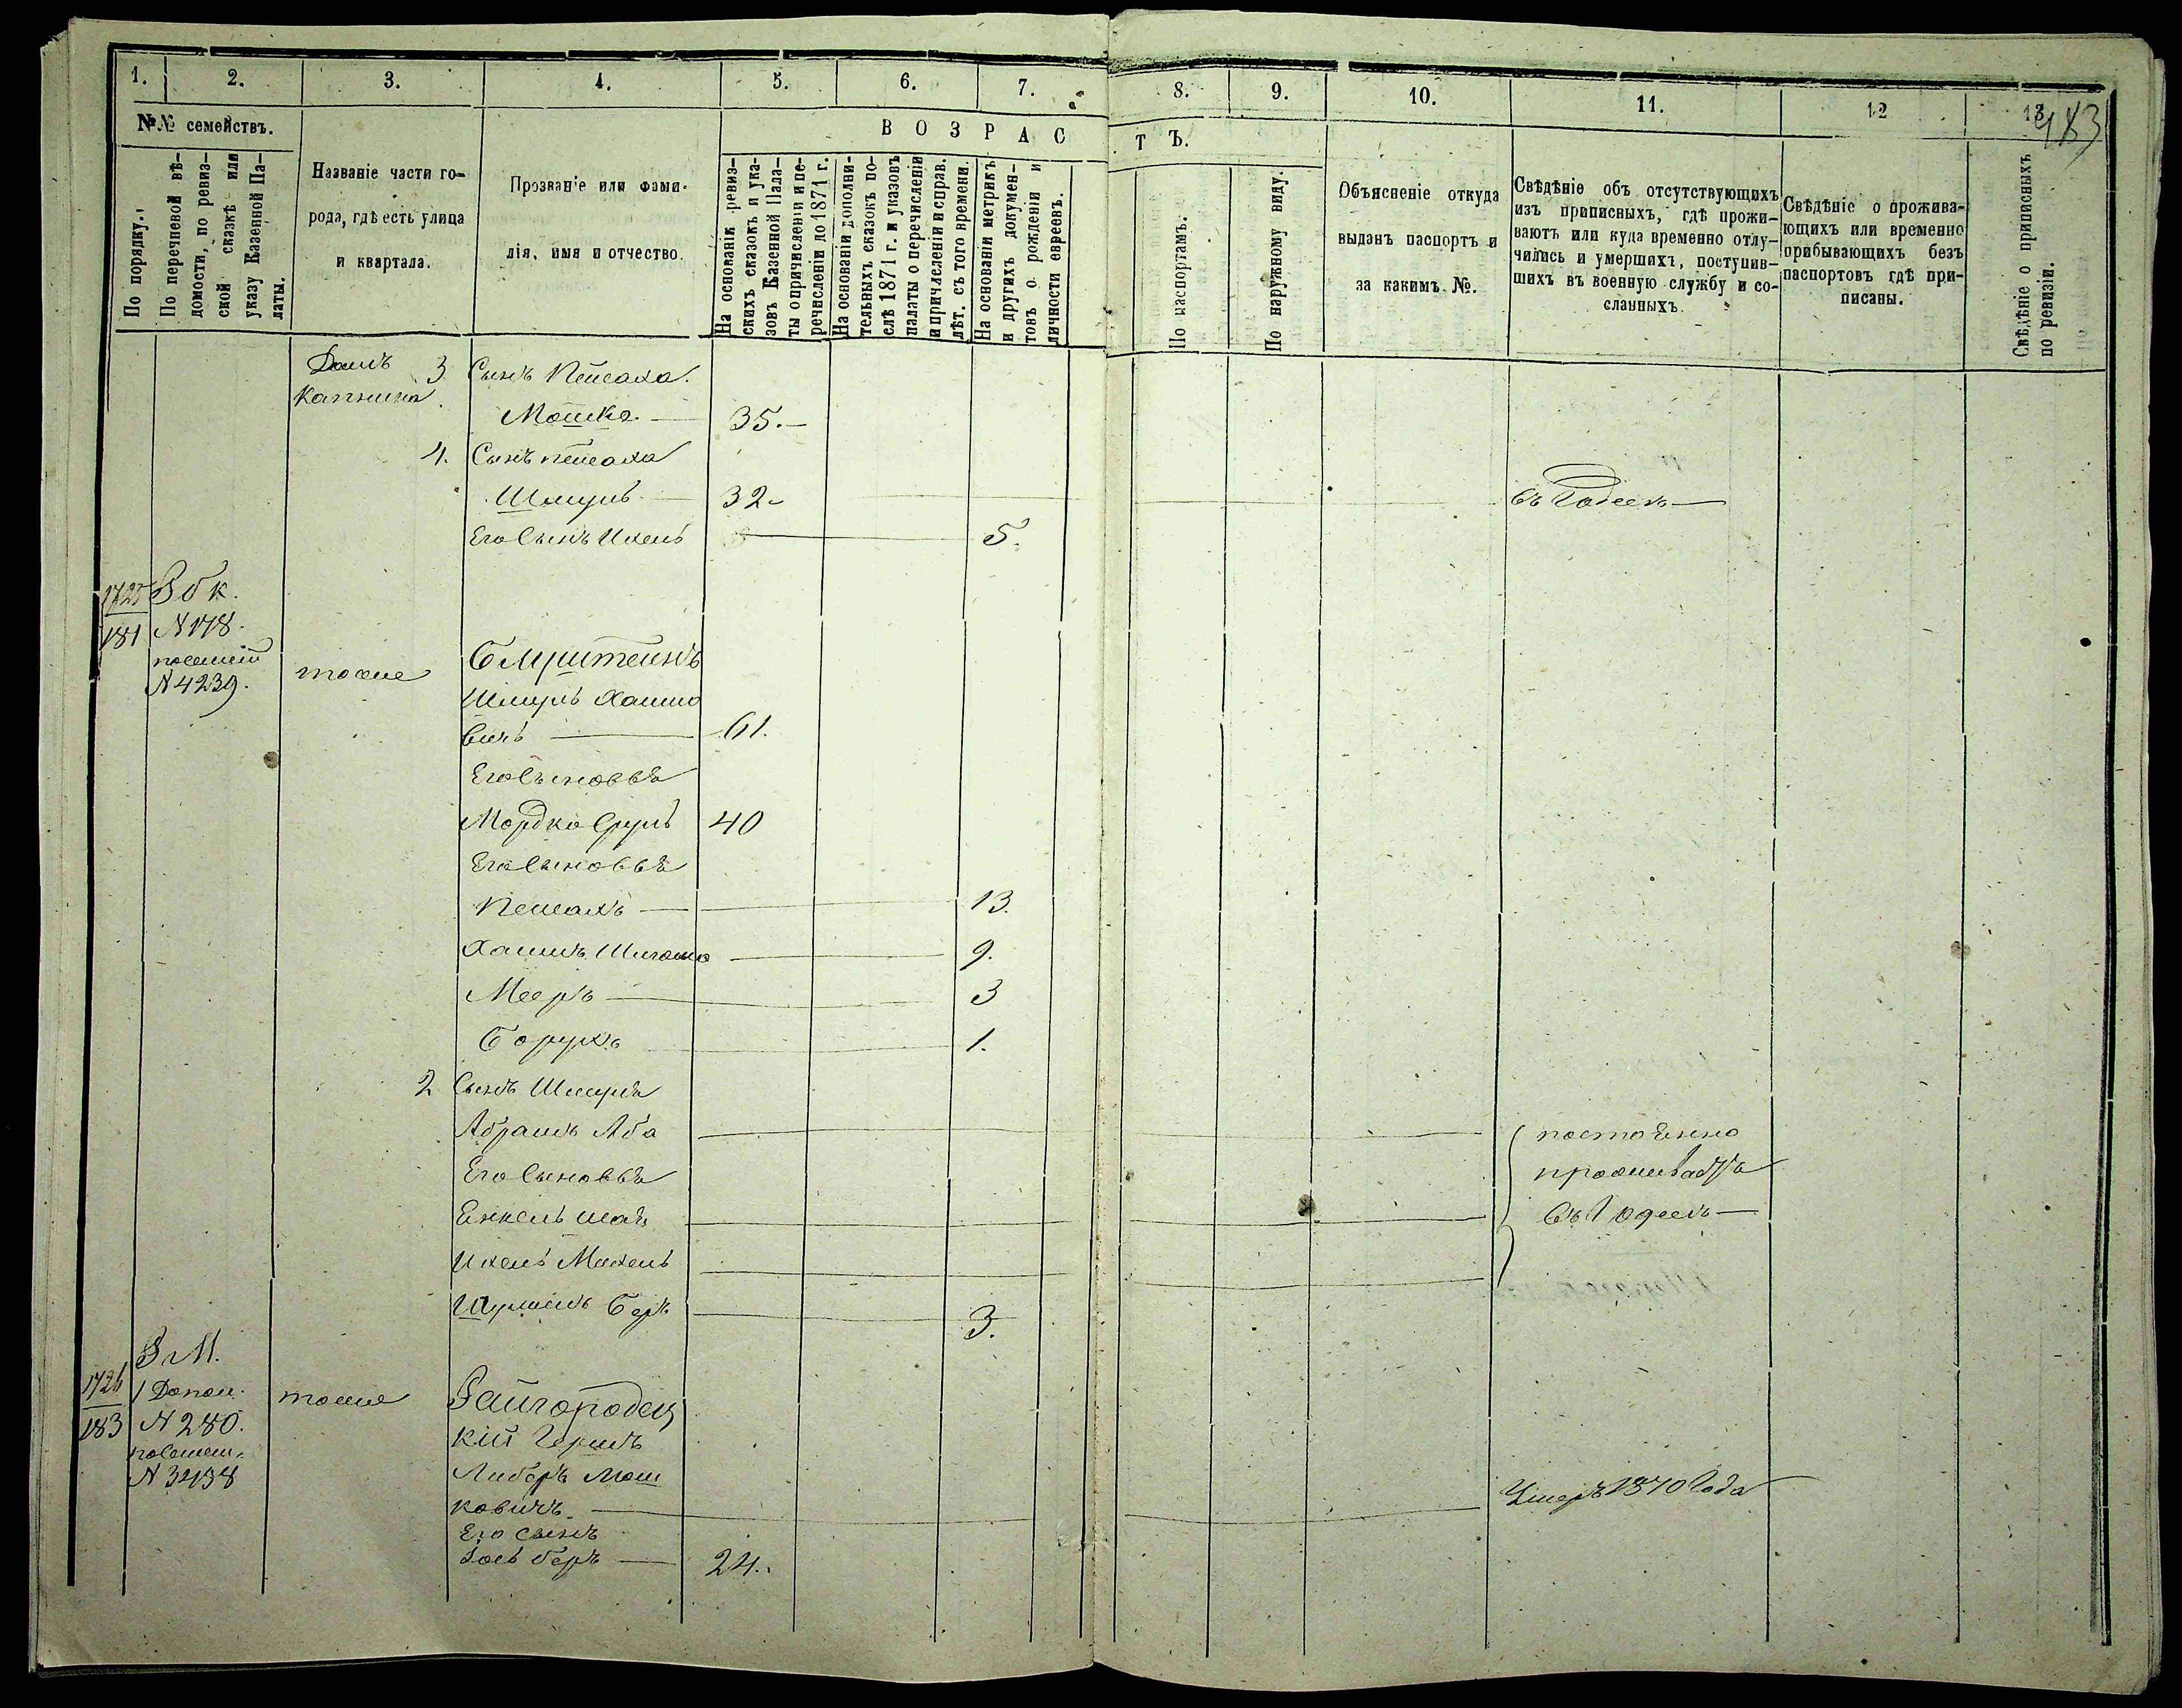 1.
2.
3.
4.
5.
6.
7.
8.
9.
10.
11.
12
13.
483
№№ семействъ.
В О З Р А С Т Ъ.
По порядку.
По перечневой вѣ-
домости, по ревиз-
ской сказкѣ или
указу Казенной Па-
латы.
Названіе части го-
рода, гдѣ есть улица
и квартала.
Прозваніе или фами-
лія, имя и отчество.
На основаніи ревиз-
скихъ сказокъ и ука-
зовъ Казенной Пала-
ты о причисленіи и пе-
речисленіи до 1871 г.
На основаніи дополни-
тельныхъ сказокъ по-
слѣ 1871 г. и указовъ
палаты о перечисленіи
и причисленіи и справ.
лѣт. съ того времени.
На основаніи метрикъ
и другихъ докумен-
товъ о рожденіи и
личности евреевъ.
По паспортамъ.
По наружному виду.
Объясненіе откуда
выданъ паспортъ и
за какимъ №.
Свѣдѣніе объ отсутствующихъ
изъ приписныхъ, гдѣ прожи-
ваютъ или куда временно отлу-
чились и умершихъ, поступив-
шихъ въ военную службу и со-
сланныхъ.
Свѣдѣніе о прожива-
ющихъ или временно
прибывающихъ безъ
паспортовъ гдѣ при-
писаны.
Свѣдѣніе о приписныхъ
по ревизіи.
Домъ 3 Сынъ Пейсаха.
Мошко 35.
4. Сынъ Пейсаха
Шмуль 32
Его Сынъ Ихель 5.
1725
181
N 178.
N 4239.
тоже
Блуштейнъ
Шмуль Хаимо
вичъ 61.
Его Сыновья
Мордко Сруль 40
Его Сыновья
Пейсахъ 13.
Хаимъ 9.
Мееръ 3
Борухъ 1.
2 Сынъ Шмуля
Абрамъ Аба
постоянно
Его Сыновья
проживаютъ
Въ Одессѣ
Ихель Махель
Беръ 3.
1726
183
З М.
1 Допол.
N 280.
N 3438
тоже
Зайгородец
кій Гершъ
Либеръ Мош
ковичъ
Умеръ 1870 Года
Его сынъ
Беръ 24.